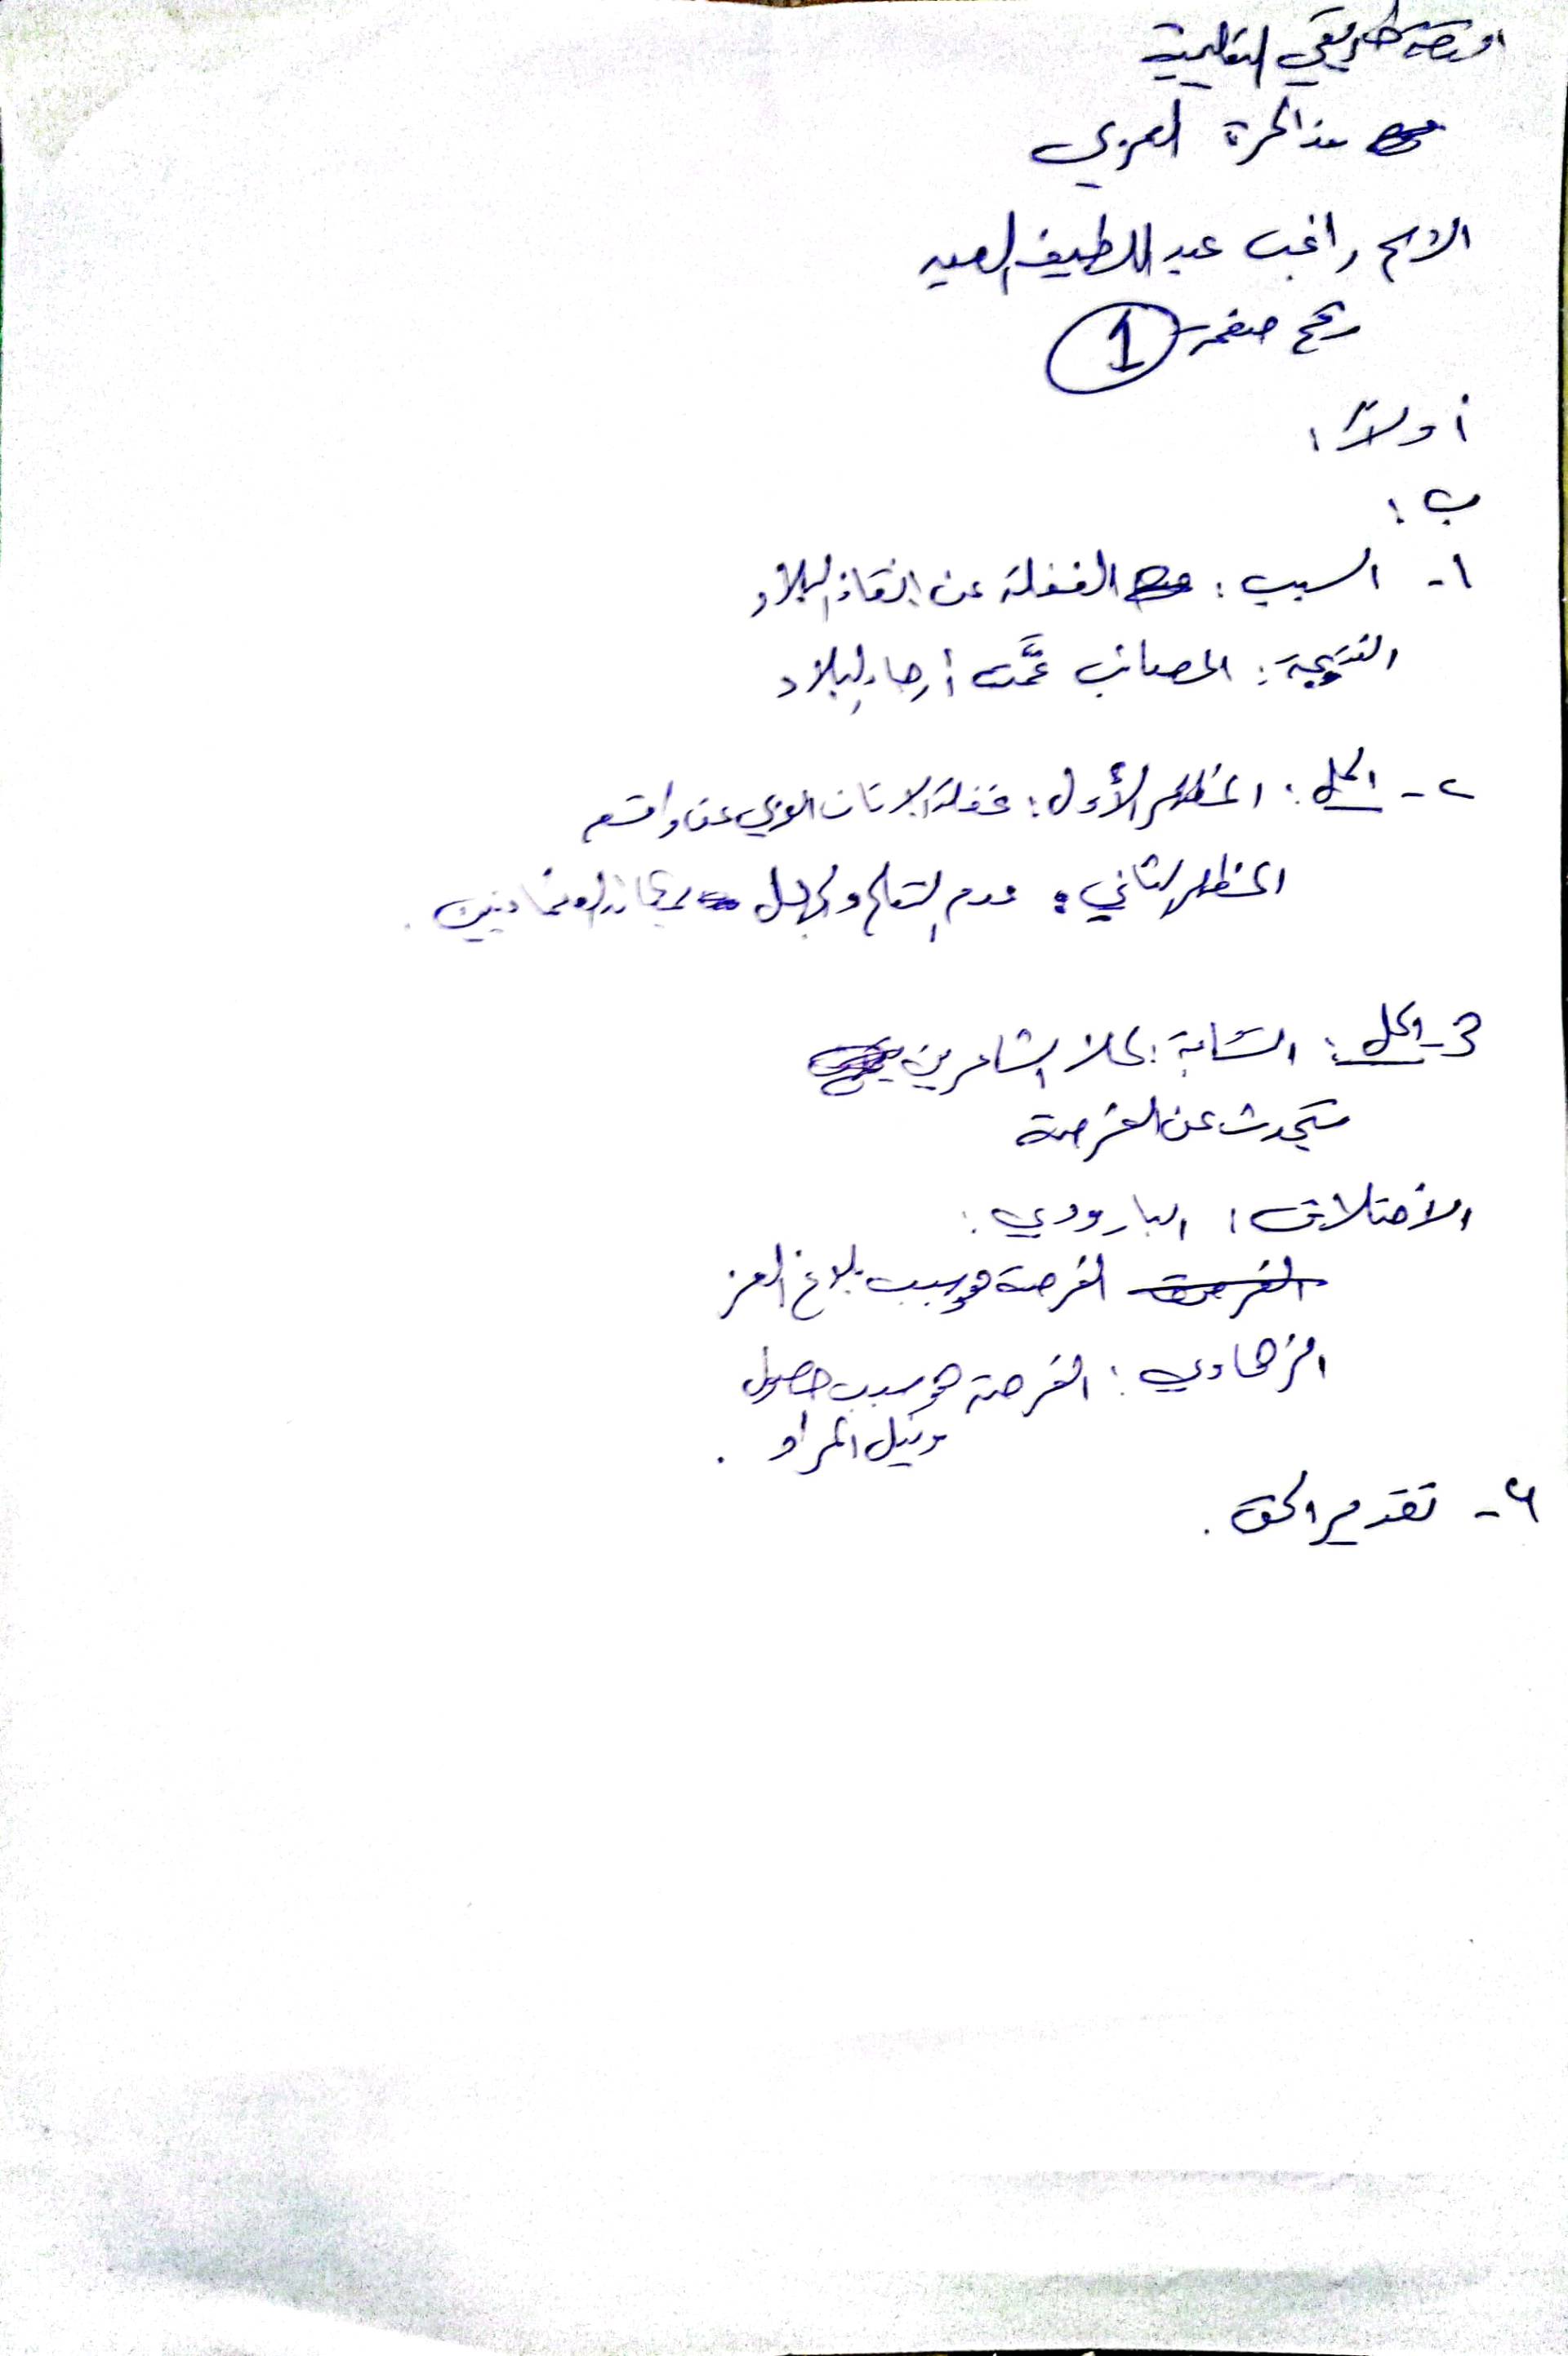 منصة طريقي التعليمية
مذاكرة العربي
الاسم راغب عبد اللطيف العيد
رقم صفحة 1
أولاً:
ب:
١- السبب: الغفلة عن إنقاذ البلاد
النتيجة: المصائب عمَّت أرجاء البلاد
٢- الحل: المظهر الأول: غفلة الإنسان العربي عن واقعه
المظهر الثاني: عدم التعلم والجهل العثمانيين.
3- الحل: التشابه: كلا الشاعرين
يتحدث عن الفرصة
الاختلاف: البارودي:
الفرصة هو سبب بلاغ العز
الزهاوي: الفرصة هو سبب حصول
ونيل المراد.
٤- تقديم الحق.